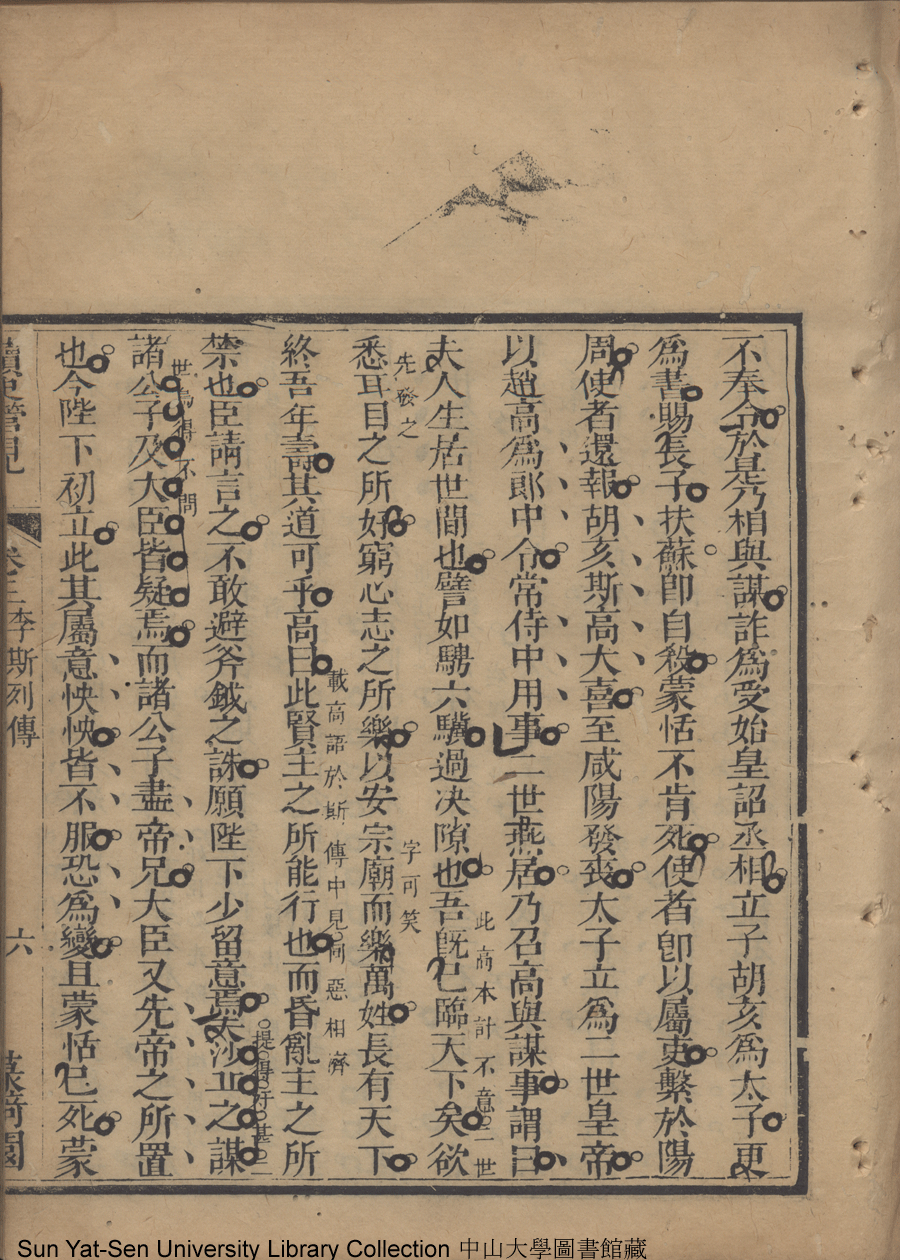 不奉令於是乃相與謀詐爲受始皇詔丞相立子胡亥爲太子更
爲書賜長子扶蘇卽自殺蒙恬不肯死使者卽以屬吏繫於陽
周使者還報胡亥斯高大喜至咸陽發喪太子立爲二世皇帝
以趙高爲郎中令常侍中用事二世燕居乃召高與謀事謂曰
此高本計不意二世
先發之
夫人生居世間也譬如騁六驥過決隙也吾旣已臨天下矣欲
字可笑
悉耳目之所好窮心志之所樂以安宗廟而樂萬姓長有天下
終吾年壽其道可乎高曰此賢主之所能行也而昏亂主之所
載高語於斯傳中見同惡相濟
禁也臣請言之不敢避斧鉞之誅願陛下少留意焉夫沙丘之謀
提得好甚二
世烏得不問
諸公子及大臣皆疑焉而諸公子盡帝兄大臣又先帝之所置
也今陛下初立此其屬意怏怏皆不服恐爲變且蒙恬已死蒙
讀史管見
卷三李斯列傳
六
Sun Yat-Sen University Library Collection 中山大學圖書館藏